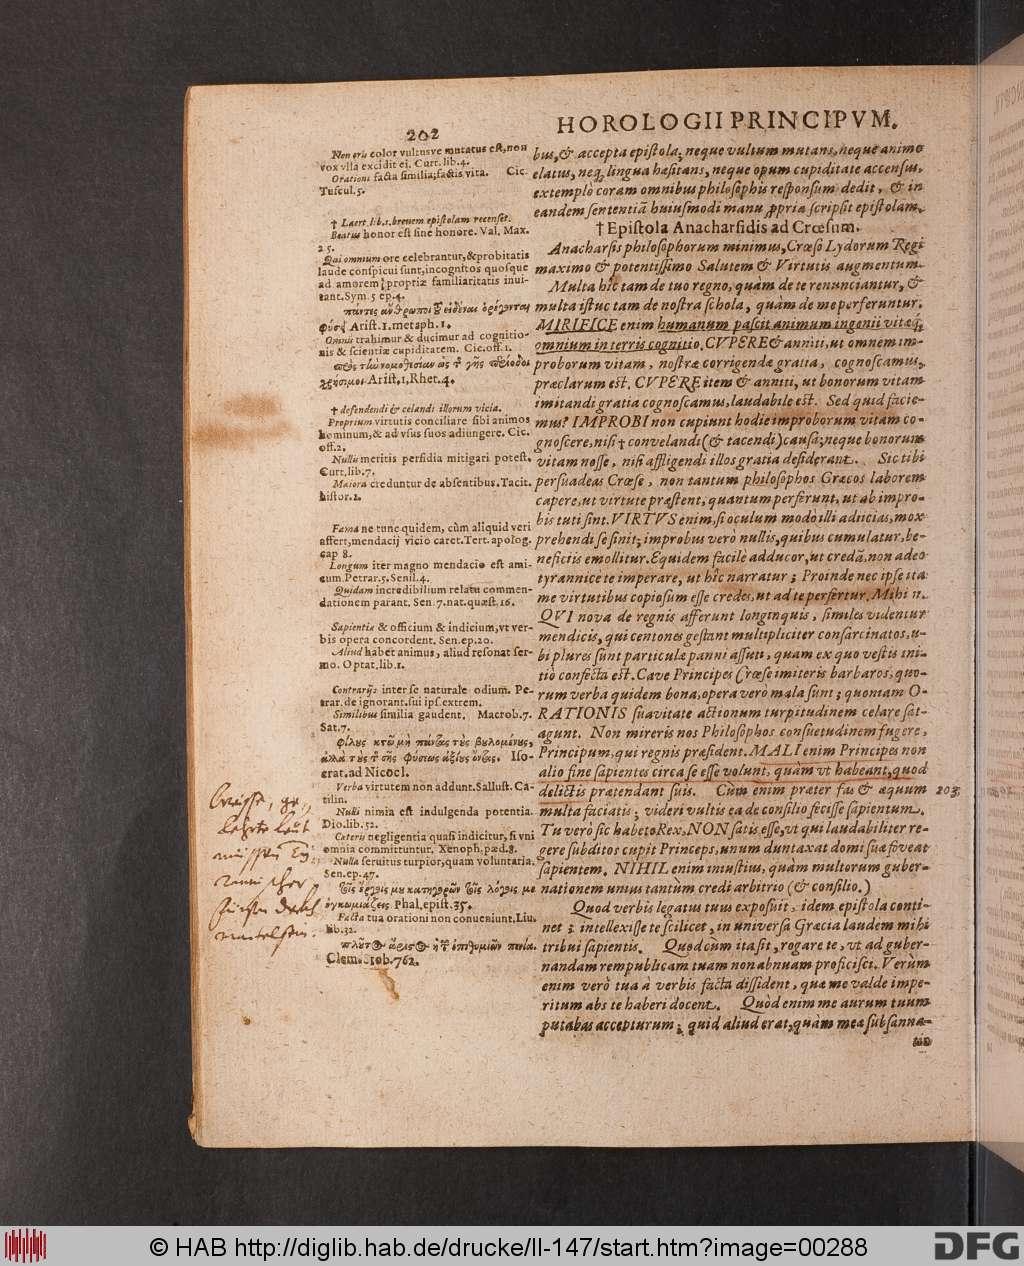 202
HOROLOGII PRINCIPVM.
Non oris color vultusve mutatus est, non
vox vlla excidit ei. Curt. lib. 4.
Orationi facta similia; factis vita. Cic.
Tuscul. 5.
† Laert. lib. 1. brevem epistolam recenset.
Beatus honor est sine honore. Val. Max.
2 5.
Qui omnium ore celebrantur, & probitatis
laude conspicui sunt, incognitos quosque
ad amorem propriæ familiaritatis inui-
tant. Sym. 5 ep. 4.
Arist. 1. metaph. 1.
Omnes trahimur & ducimur ad cognitio-
nis & scientiæ cupiditatem. Cic. off. 1.
χρήσιμοι Arist, 1, Rhet. 4.
† defendendi & celandi illorum vicia.
Proprium virtutis conciliare sibi animos
hominum, & ad vsus suos adiungere. Cic.
off. 2.
Nullis meritis perfidia mitigari potest.
Curt. lib. 7.
Maiora creduntur de absentibus. Tacit.
histor. 2.
Fama ne tunc quidem, cùm aliquid veri
affert, mendacij vicio caret. Tert. apolog.
cap 8.
Longum iter magno mendacio est ami-
cum. Petrar. 5. Senil. 4.
Quidam incredibilium relatu commen-
dationem parant. Sen. 7. nat. quæst. 16.
Sapientiæ & officium & indicium, vt ver-
bis opera concordent. Sen. ep. 20.
Aliud habet animus, aliud resonat ser-
mo. Optat. lib. 1.
Contrarijs inter se naturale odium. Pe-
trar. de ignorant. sui ips. extrem.
Similibus similia gaudent. Macrob. 7.
Sat. 7.
Iso-
crat. ad Nicocl.
Verba virtutem non addunt. Sallust. Ca-
tilin.
Nulli nimia est indulgenda potentia.
Dio. lib. 52.
Cæteris negligentia quasi indicitur, si vni
omnia committuntur. Xenoph. pæd. 8.
Nulla seruitus turpior, quam voluntaria.
Sen. ep. 47.
Phal. epist. 35.
Facta tua orationi non conueniunt. Liu.
lib. 32.
Clem. Stob. 762.
bus, & accepta epistola; neque vultum mutans, neque animo
elatus, neq; lingua hæsitans, neque opum cupiditate accensus,
extemplò coram omnibus philosophis responsum dedit, & in
eandem sententiã huiusmodi manu propria scripsit epistolam.
† Epistola Anacharsidis ad Crœsum.
Anacharsis philosophorum minimus, Crœso Lydorum Regi
maximo & potentissimo Salutem & Virtutis augmentum.
Multa hîc tam de tuo regno, quàm de te renunciantur, &
multa istuc tam de nostra schola, quàm de me perferuntur.
MIRIFICE enim humanum pascit animum ingenii vitæq;
omnium in terris cognitio. CVPERE & anniti, ut omnem im-
proborum vitam, nostræ corrigendæ gratia, cognoscamus,
præclarum est. CVPERE item & anniti, ut bonorum vitam
imitandi gratia cognoscamus, laudabile est. Sed quid facie-
mus? IMPROBI non cupiunt hodie improborum vitam co-
gnoscere, nisi † convelandi (& tacendi) causa; neque bonorum
vitam nosse, nisi affligendi illos gratia desiderant. Sic tibi
persuadeas Crœse, non tantum philosophos Græcos laborem
capere, ut virtute præstent, quantum perferunt, ut ab impro-
bis tuti sint. VIRTVS enim, si oculum modò illi adiicias, mox
prehendi se sinit; improbus verò nullis, quibus cumulatur, be-
neficiis emollitur. Equidem facile adducor, ut credã, non adeo
tyrannice te imperare, ut hîc narratur; Proinde nec ipse ita
me virtutibus copiosum esse credes, ut ad te perfertur. Mihi ii.
QVI nova de regnis afferunt longinquis, similes videntur
mendicis, qui centones gestant multipliciter consarcinatos, u-
bi plures sunt particulæ panni assuti, quam ex quo vestis ini-
tiò confecta est. Cave Principes Crœse imiteris barbaros, quo-
rum verba quidem bona, opera verò mala sunt; quoniam O-
RATIONIS suavitate actionum turpitudinem celare sat-
agunt. Non mireris nos Philosophos consuetudinem fugere,
Principum, qui regnis præsident. MALI enim Principes non
alio fine sapientes circa se esse volunt, quàm vt habeant, quod
delictis prætendant suis. Cùm enim præter fas & æquum
203
multa faciatis; videri vultis ea de consilio fecisse sapientum.
Tu verò sic habeto Rex, NON satis esse, vt qui laudabiliter re-
gere subditos cupit Princeps, unum duntaxat domi suæ foveat
sapientem. NIHIL enim iniustius, quàm multorum guber-
nationem unius tantùm credi arbitrio (& consilio.)
Quod verbis legatus tuus exposuit, idem epistola conti-
net; intellexisse te scilicet, in universa Græcia laudem mihi
tribui sapientis. Quod cùm ita sit, rogare te, vt ad guber-
nandam rempublicam tuam non abnuam proficisci. Verùm
enim verò tua à verbis facta dissident, quæ me valde impe-
ritum abs te haberi docent. Quòd enim me aurum tuum
putabas accepturum; quid aliud erat, quàm mea subsanna-
© HAB http://diglib.hab.de/drucke/ll-147/start.htm?image=00288
DFG